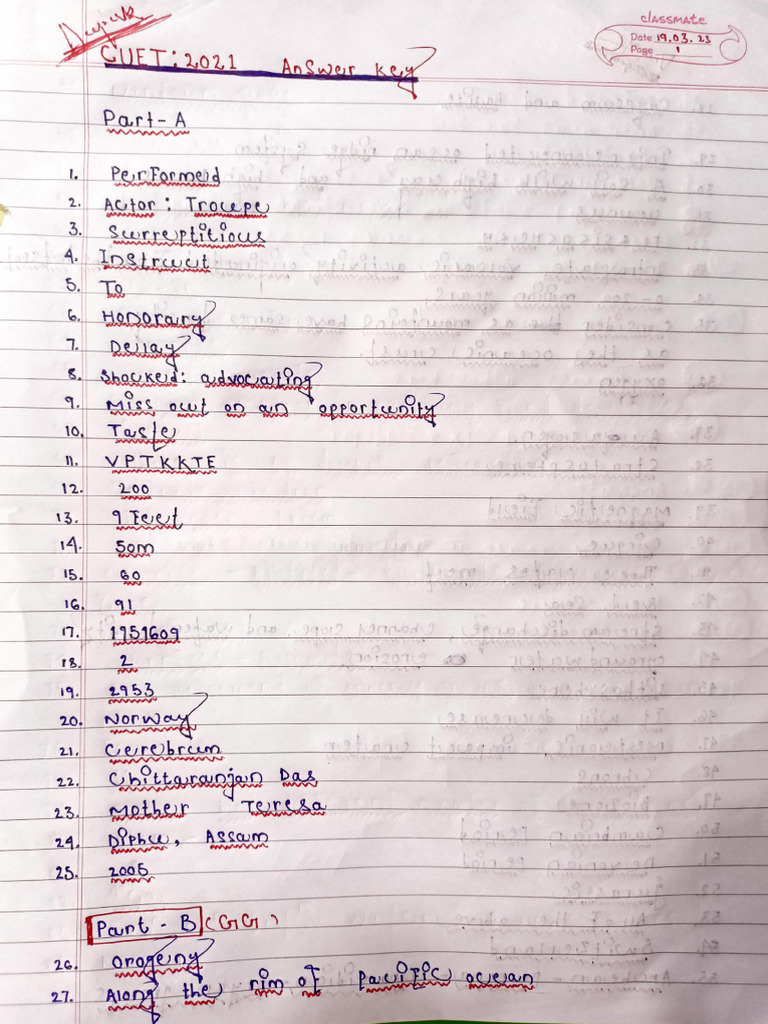 Deepak
classmate
Date 19.03.23
Page 1
CUET: 2021 Answer Key
Part-A
1. Performed
2. Actor: Trocepe
3. Surreptitious
4. Instruct
5. To
6. Honorary
7. Dellay
8. Shocked: advocating
9. Miss out on an opportunity
10. Taste
11. VPTKKTE
12. 200
13. 9 Feet
14. 50m
15. 60
16. 91
17. 1951609
18. 2
19. 2953
20. Norway
21. Cerebrum
22. Chittaranjan Das
23. Mother Teresa
24. Diphu, Assam
25. 2005
Part - B (GG)
26. Orogeny
27. Along the rim of pacific ocean